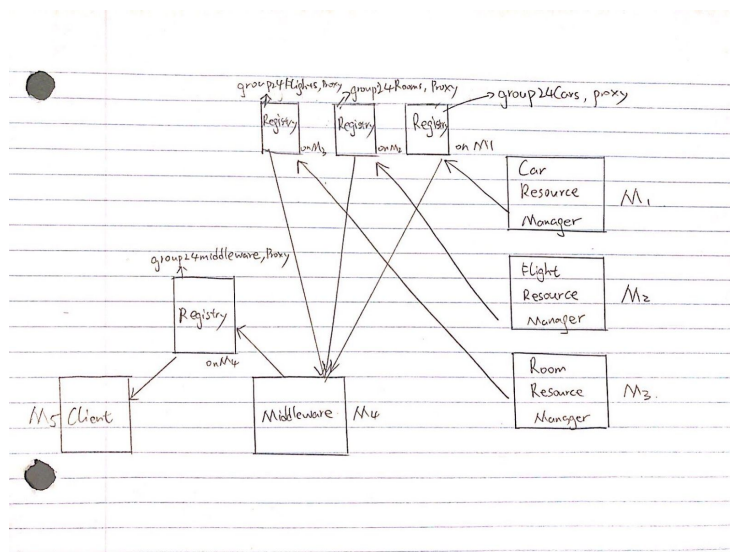 group24flights, Proxy
group24Rooms, Proxy
group24Cars, proxy
Registry
on M3
Registry
on M2
Registry
on M1
Car
Resource
Manager
M1
Flight
Resource
Manager
M2
Room
Resource
Manager
M3.
group24middleware, Proxy
Registry
on M4
M5
Client
Middleware
M4